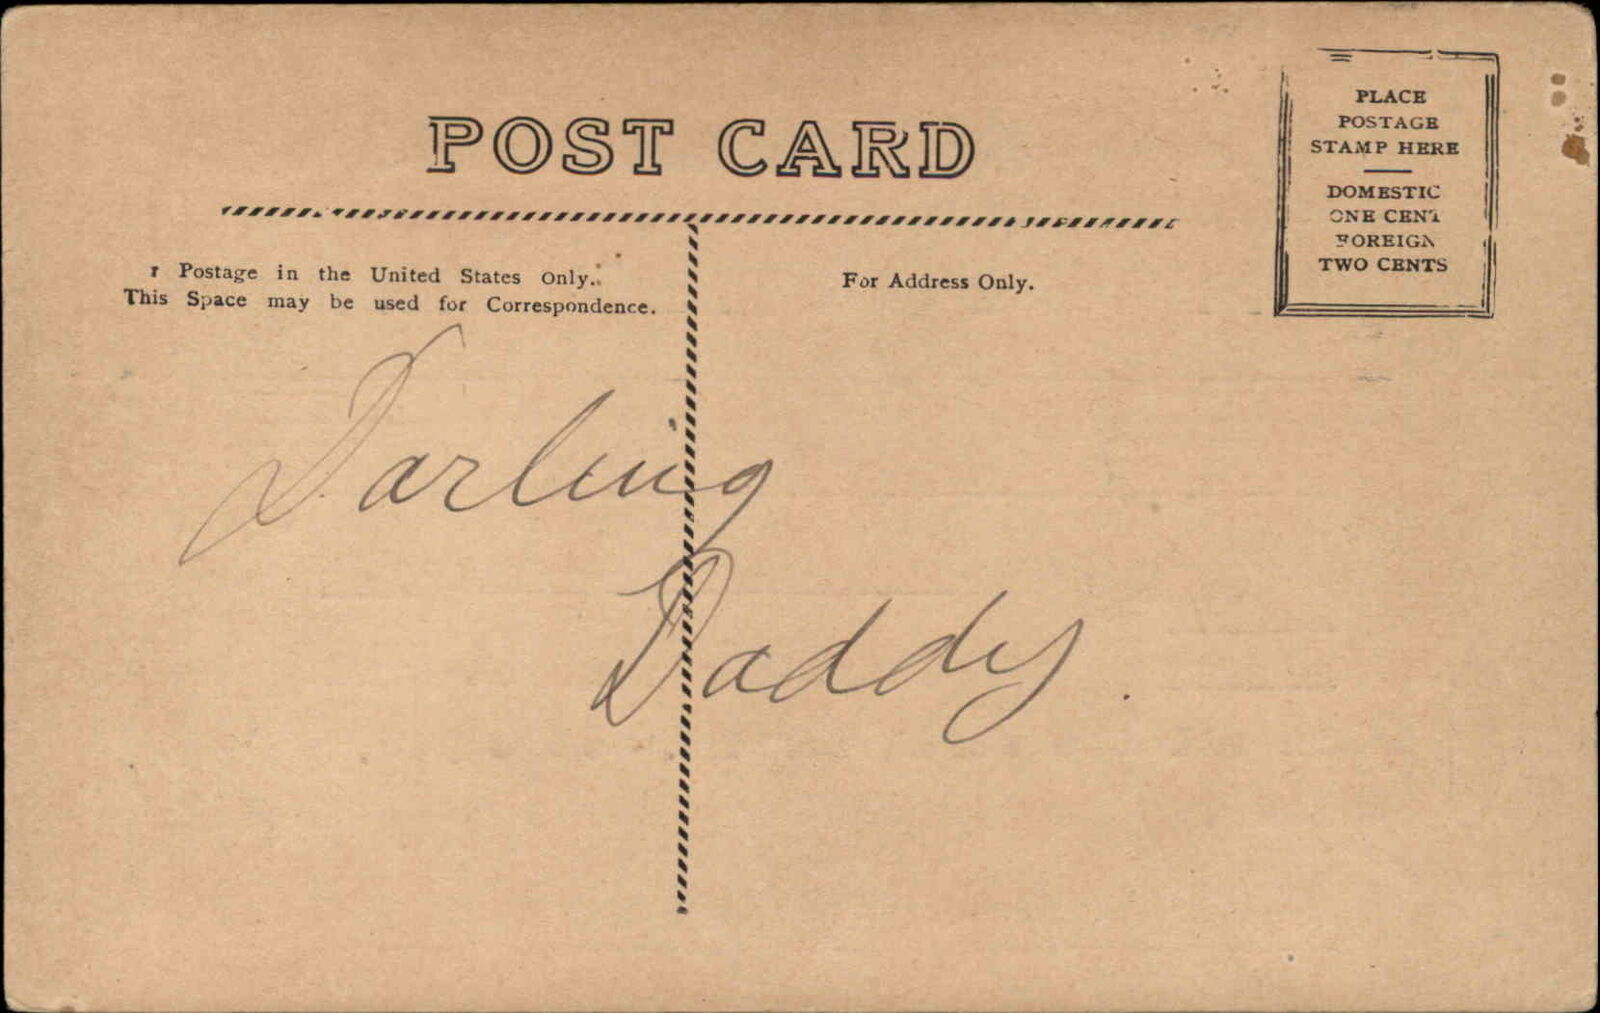 POST CARD
PLACE
POSTAGE
STAMP HERE
DOMESTIC
ONE CENT
FOREIGN
TWO CENTS
r Postage in the United States only.
This Space may be used for Correspondence.
For Address Only.
Darling
Daddy.